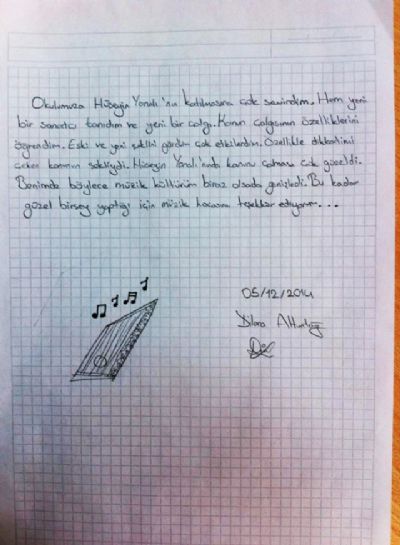 Okulumuza Hüseyin Yoralı'nın katılmasına çok sevindim. Hem yeni
bir sanatcı tanıdım ve yeni bir çalgı. Kanun çalgısının özelliklerini
öğrendim. Eski ve yeni şeklini gördüm çok etkilendim. Özellikle dikkatimi
çeken kanunun şekliydi. Hüseyin Yoralı'nında kanunu çalması çok güzeldi.
Benimde böylece müzik kültürüm biraz olsada genişledi. Bu kadar
güzel birşey yaptığı için müzik hocasına teşekkür ediyorum...
05/12/2014
Dilara